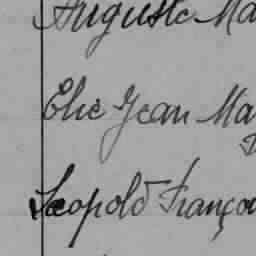 Auguste Ma
Elie Jean Ma
Léopold Françoi